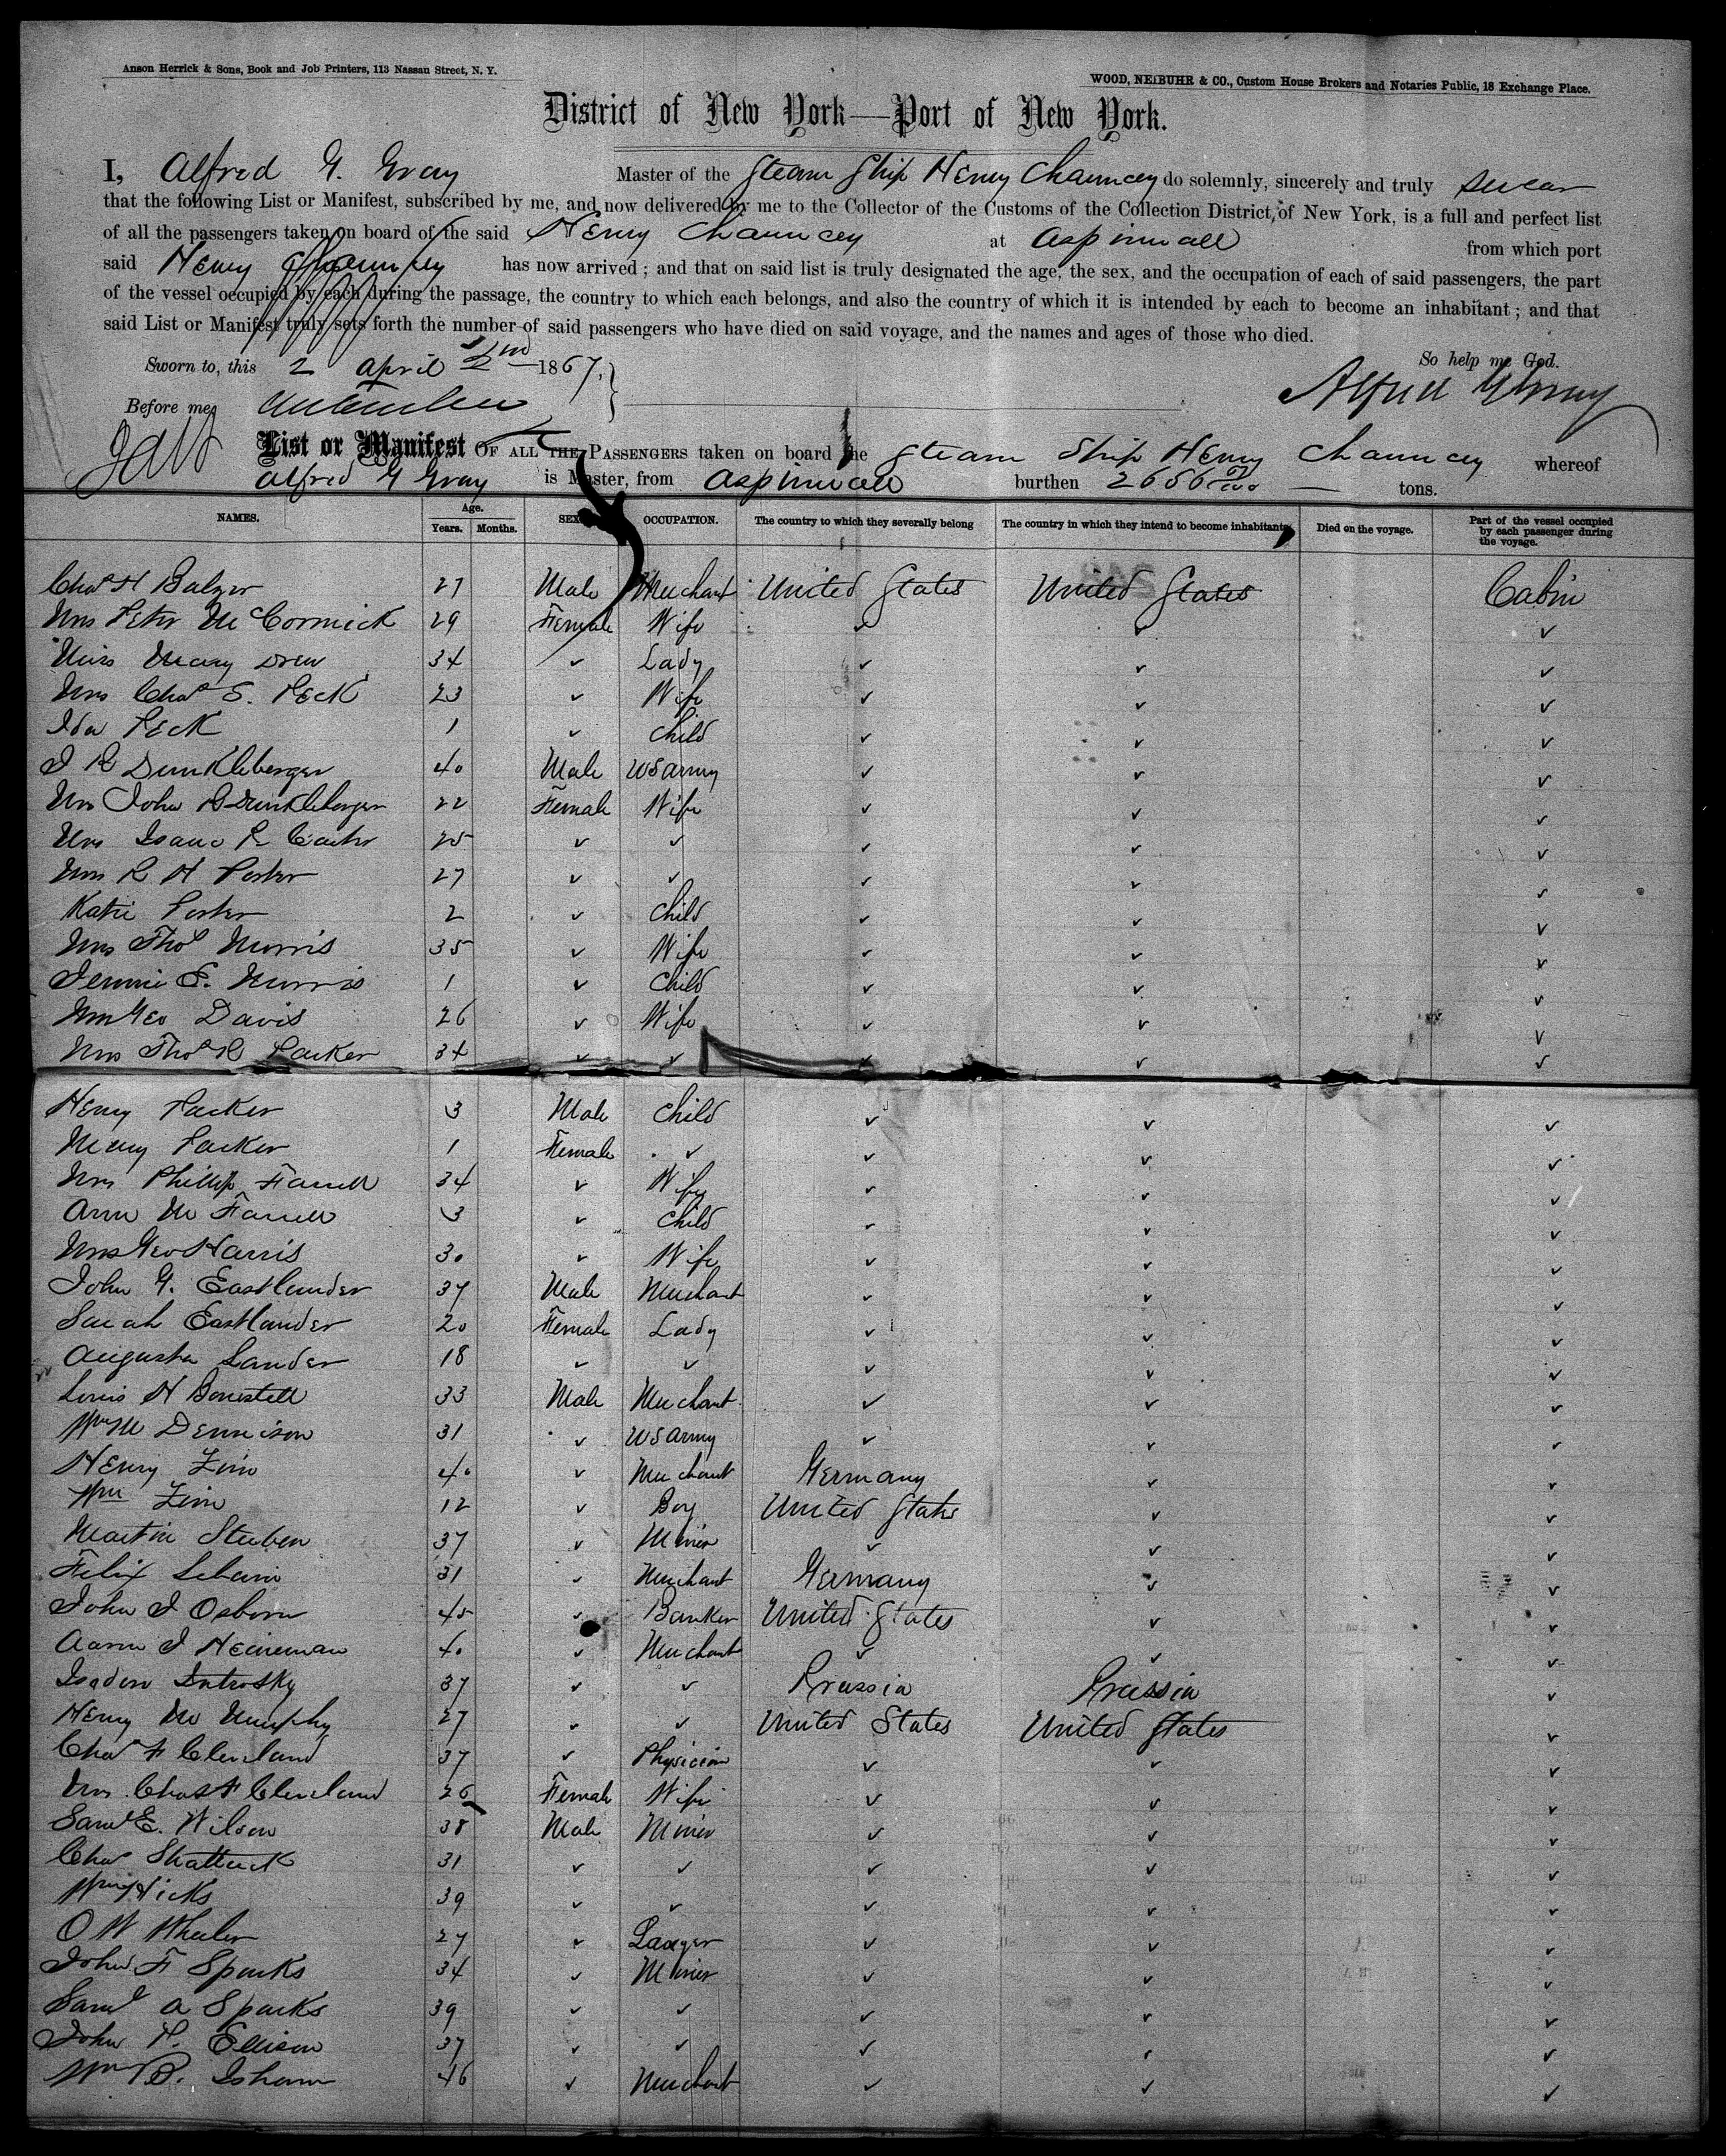 Anson Herrick & Sons, Book and Job Printers, 113 Nassau Street, N. Y.
WOOD, NEIBUHR & CO., Custom House Brokers and Notaries Public, 18 Exchange Place.
District of New York—Port of New York.
I, Alfred G. Gray Master of the Steam Ship Henry Chauncey do solemnly, sincerely and truly swear
that the following List or Manifest, subscribed by me, and now delivered by me to the Collector of the Customs of the Collection District, of New York, is a full and perfect list
of all the passengers taken on board of the said Henry Chauncey at Aspinwall from which port
said Henry Chauncey has now arrived; and that on said list is truly designated the age, the sex, and the occupation of each of said passengers, the part
of the vessel occupied by each during the passage, the country to which each belongs, and also the country of which it is intended by each to become an inhabitant; and that
said List or Manifest truly sets forth the number of said passengers who have died on said voyage, and the names and ages of those who died.
So help me God.
Sworn to, this 2 April 2nd 1867,
Alfred G Gray
Before me,
List or Manifest OF ALL THE PASSENGERS taken on board the Steam Ship Henry Chauncey whereof
Alfred G Gray is Master, from Aspinwall burthen 2656 tons.
NAMES. Age. Years. Months. SEX OCCUPATION. The country to which they severally belong The country in which they intend to become inhabitants Died on the voyage. Part of the vessel occupied by each passenger during the voyage.
Chas H Balzer 27 Male Merchant United States United States Cabin
Mrs Peter McCormick 29 Female Wife ✓ ✓ ✓
Miss Mary Drew 34 ✓ Lady ✓ ✓ ✓
Mrs Chas S. Peck 23 ✓ Wife ✓ ✓ ✓
Ida Peck 1 ✓ Child ✓ ✓ ✓
J R Dunkleberger 40 Male US Army ✓ ✓ ✓
Mrs John R Dunkleberger 22 Female Wife ✓ ✓ ✓
Mrs Isaac R 25 ✓ ✓ ✓ ✓ ✓
Mrs R H Porter 27 ✓ ✓ ✓ ✓ ✓
Katie Porter 2 ✓ Child ✓ ✓ ✓
Mrs Thos Morris 35 ✓ Wife ✓ ✓ ✓
Jennie E. Morris 1 ✓ Child ✓ ✓ ✓
Mrs Geo Davis 26 ✓ Wife ✓ ✓ ✓
Mrs Thos R Packer 34 ✓ ✓ ✓ ✓ ✓
Henry Packer 3 Male Child ✓ ✓ ✓
Mary Packer 1 Female ✓ ✓ ✓ ✓
Mrs Phillip Farrell 34 ✓ Wife ✓ ✓ ✓
Ann M Farrell 3 ✓ Child ✓ ✓ ✓
Mrs Geo Harris 30 ✓ Wife ✓ ✓ ✓
John G. Eastlander 37 Male Merchant ✓ ✓ ✓
Sarah Eastlander 20 Female Lady ✓ ✓ ✓
Augusta Lander 18 ✓ ✓ ✓ ✓ ✓
Louis H Bonestell 33 Male Merchant ✓ ✓ ✓
Wm M Dennison 31 ✓ US Army ✓ ✓ ✓
Henry Zinn 40 ✓ Merchant Germany ✓ ✓
Wm Zinn 12 ✓ Boy United States ✓ ✓
Martin Steuben 37 ✓ Miner ✓ ✓ ✓
Felix 31 ✓ Merchant Germany ✓ ✓
John J Osborn 45 ✓ Banker United States ✓ ✓
Aaron J Heineman 40 ✓ Merchant ✓ ✓ ✓
Isadore 37 ✓ ✓ Prussia Prussia ✓
Henry M Murphy 27 ✓ ✓ United States United States ✓
Chas F Cleveland 37 ✓ Physician ✓ ✓ ✓
Mrs Chas F Cleveland 26 Female Wife ✓ ✓ ✓
Saml E. Wilson 38 Male Miner ✓ ✓ ✓
Chas Shattuck 31 ✓ ✓ ✓ ✓ ✓
Wm Hicks 39 ✓ ✓ ✓ ✓ ✓
O W Wheeler 27 ✓ Lawyer ✓ ✓ ✓
John F Sparks 34 ✓ Miner ✓ ✓ ✓
Saml A Sparks 39 ✓ ✓ ✓ ✓ ✓
John P. Ellison 37 ✓ ✓ ✓ ✓ ✓
Wm B. Isham 46 ✓ Merchant ✓ ✓ ✓